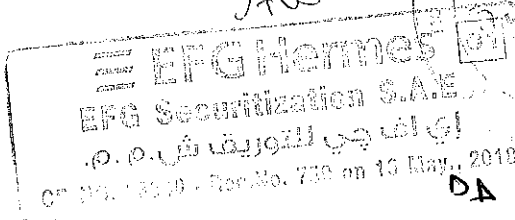 EFG Hermes
EFG Securitization S.A.E.
إي اف چي للتوريق ش.م.م.
No. 738 on 16 May., 2018
DA